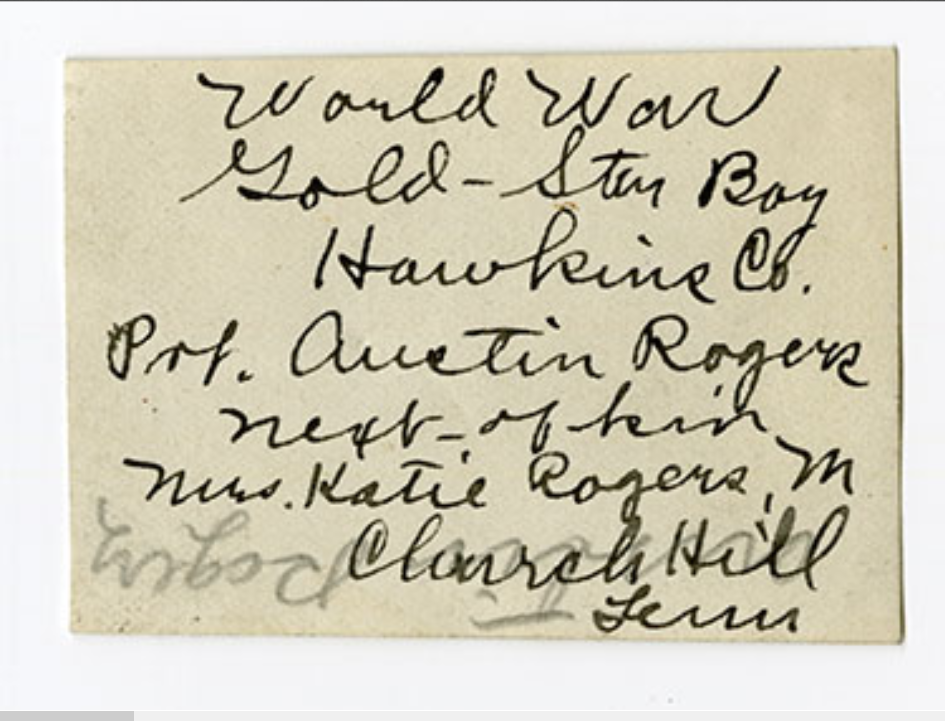 World War
Gold-Star Boy
Hawkins Co.
Pvt. Austin Rogers
next-of kin
Mrs. Katie Rogers, M
Church Hill
Tenn
Rogers